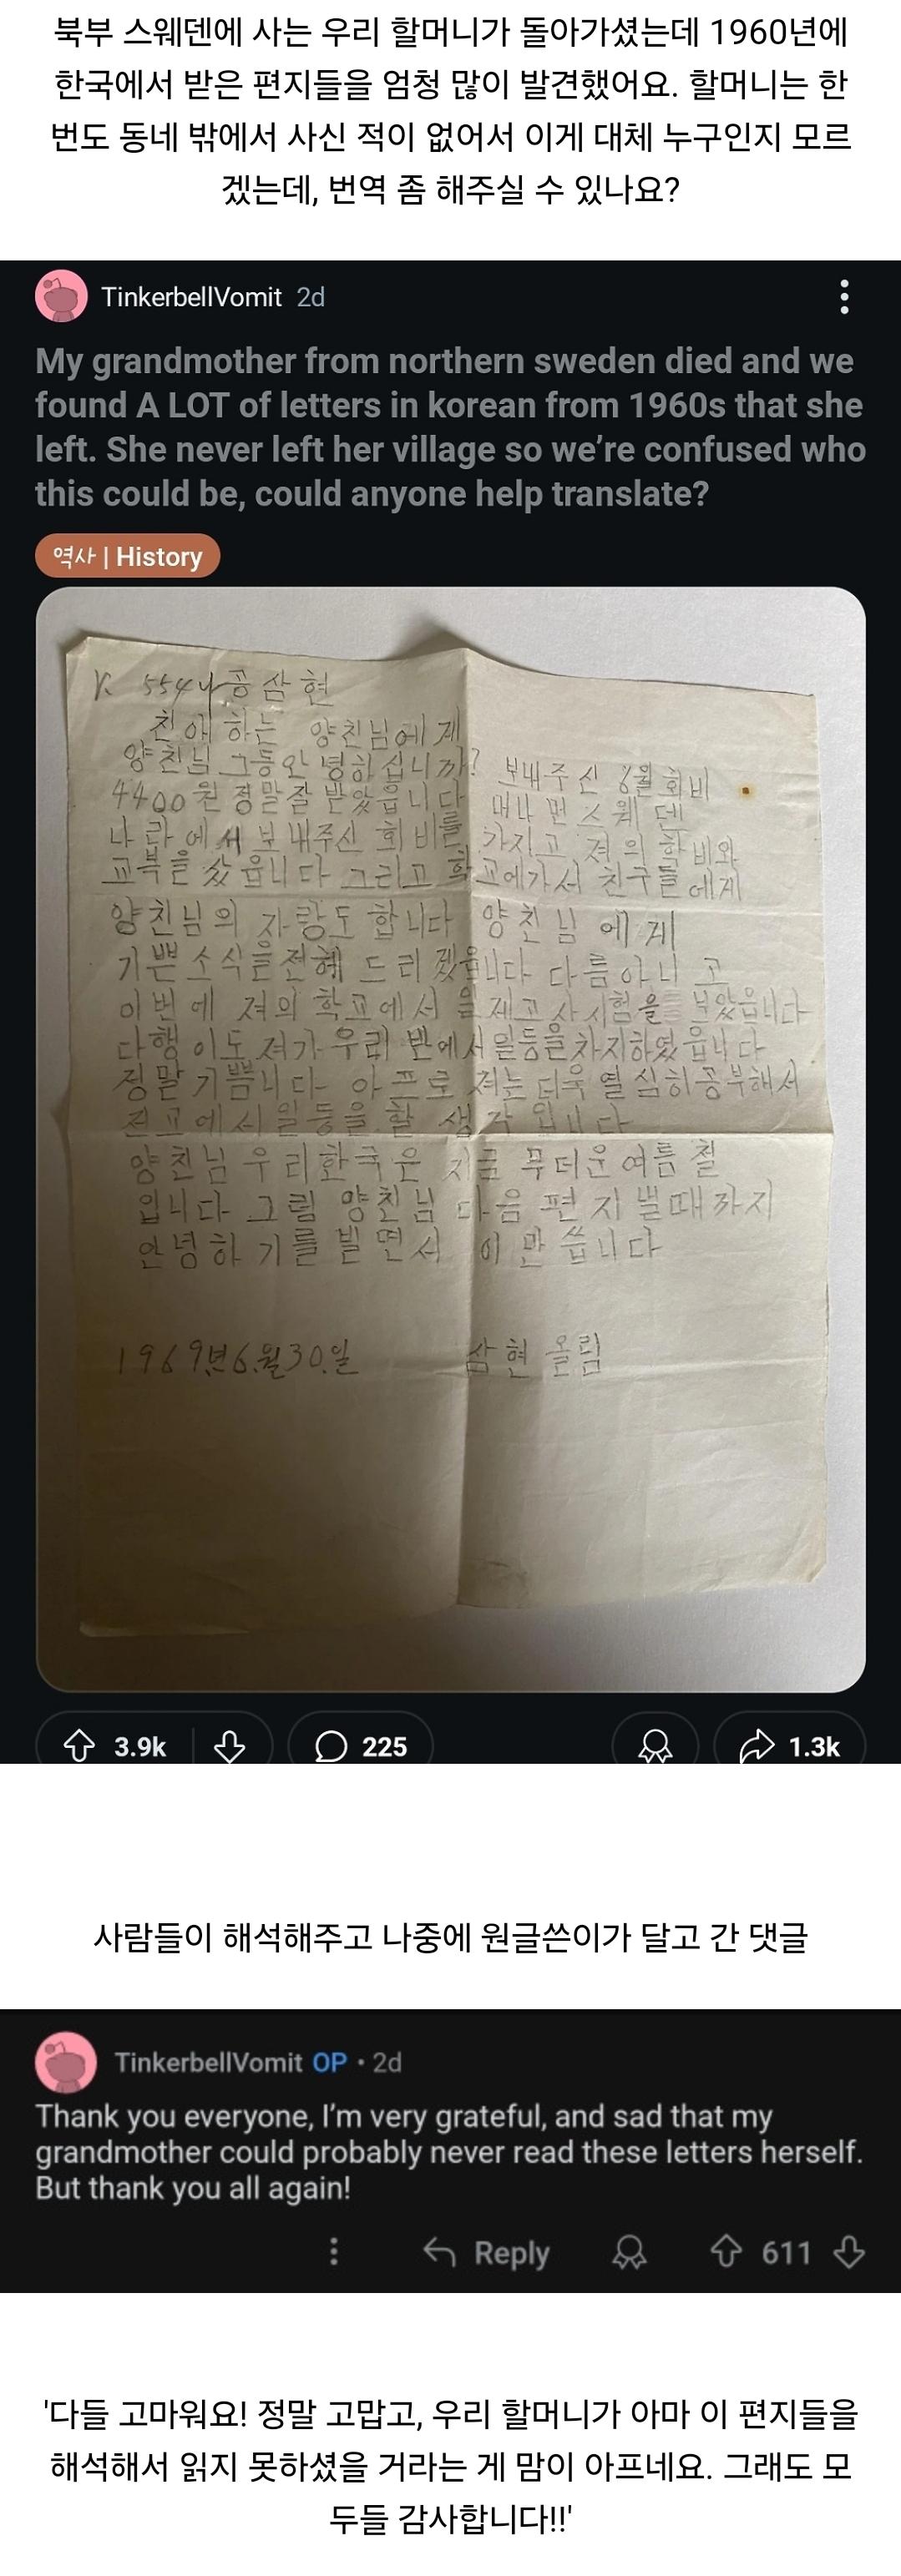 북부 스웨덴에 사는 우리 할머니가 돌아가셨는데 1960년에
한국에서 받은 편지들을 엄청 많이 발견했어요. 할머니는 한
번도 동네 밖에서 사신 적이 없어서 이게 대체 누구인지 모르
겠는데, 번역 좀 해주실 수 있나요?
TinkerbellVomit 2d
My grandmother from northern sweden died and we
found A LOT of letters in korean from 1960s that she
left. She never left her village so we're confused who
this could be, could anyone help translate?
역사 | History
K. 554 공삼현
친애하는 양친님에게
양친님 그동안 녕하십니까? 보내주신 6월 회비
4400원 정말잘 받았읍니다 머나먼 스웨덴
나라에서 보내주신 회비를 가지고 져의 학비와
교북을 샀읍니다 그리고 학교에가서 친구들에게
양친님의 자랑도 합니다 양친님에게
기쁜소식을전해 드리겠읍니다 다름아니고
이번에 져의 학교에서 일제고사시험을 보았읍니다
다행이도 져가 우리 반에서일등을차지하였읍니다
정말기쁩니다 아프로 져는 더욱 열심히공부해서
전교에서일등을 할 생각입니다
양친님 우리한국은 지금 무더운여름철
입니다 그럼 양친님 다음 편지쓸때까지
안녕하기를 빌면서 이만 씁니다
1969년6월30일 삼현 올림
3.9k 225 1.3k
사람들이 해석해주고 나중에 원글쓴이가 달고 간 댓글
TinkerbellVomit OP • 2d
Thank you everyone, I'm very grateful, and sad that my
grandmother could probably never read these letters herself.
But thank you all again!
Reply 611
'다들 고마워요! 정말 고맙고, 우리 할머니가 아마 이 편지들을
해석해서 읽지 못하셨을 거라는 게 맘이 아프네요. 그래도 모
두들 감사합니다!!'